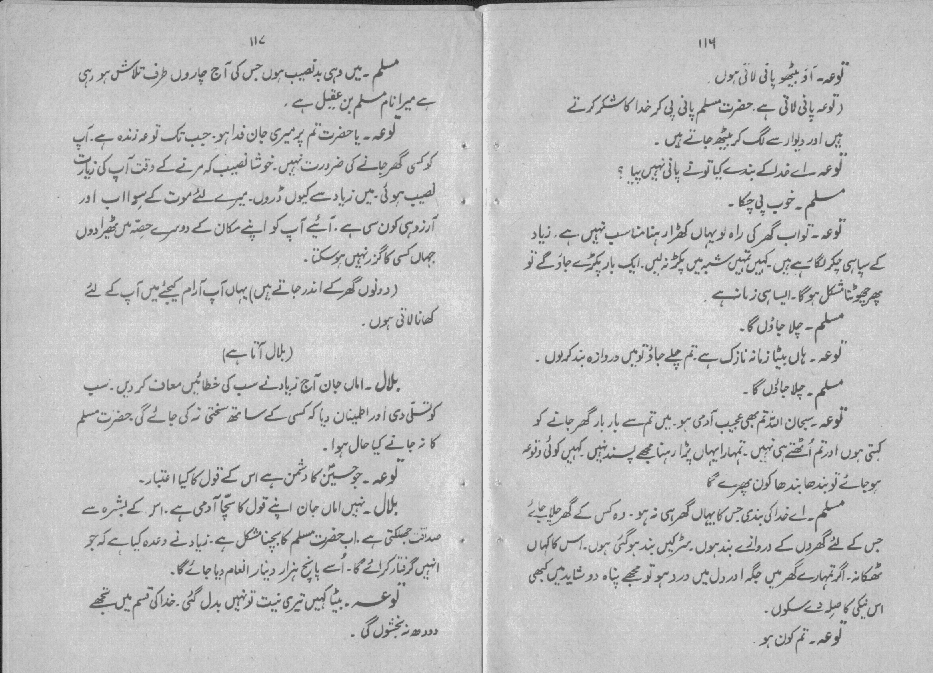 ۱۱۶
توعہ۔ آؤ بیٹھو پانی لاتی ہوں۔
(توعہ پانی لاتی ہے۔ حضرت مسلم پانی پی کر خدا کا شکر کرتے
ہیں اور دیوار سے لگ کر بیٹھ جاتے ہیں۔
توعہ۔ اے خدا کے بندے کیا تو نے پانی نہیں پیا؟
مسلم۔ خوب پی چکا۔
توعہ۔ تو اب گھر کی راہ لو یہاں کھڑا رہنا مناسب نہیں ہے۔ زیاد
کے سپاہی چکر لگا رہے ہیں۔ کہیں تمہیں شبہ میں پکڑ نہ لیں۔ ایک بار پکڑے جاؤ گے تو
پھر چھوٹنا مشکل ہوگا۔ ایسا ہی زمانہ ہے۔
مسلم۔ چلا جاؤں گا۔
توعہ۔ ہاں بیٹا زمانہ نازک ہے۔ تم چلے جاؤ تو میں دروازہ بند کر لوں۔
مسلم۔ چلا جاؤں گا۔
توعہ۔ سبحان اللہ تم بھی عجیب آدمی ہو۔ میں تم سے بار بار گھر جانے کو
کہتی ہوں اور تم اُٹھتے ہی نہیں۔ تمہارا یہاں پڑا رہنا مجھے پسند نہیں۔ کہیں کوئی وقوعہ
ہو جائے تو بندھا بندھا کون پھرے گا
مسلم۔ اے خدا کی بندی جس کا یہاں گھر ہی نہ ہو۔ وہ کس کے گھر چلا جائے
جس کے لئے گھروں کے دروازے بند ہوں۔ سڑکیں بند ہو گئی ہوں۔ اس کا کہاں
ٹھکانہ۔ اگر تمہارے گھر میں جگہ اور دل میں درد ہو تو مجھے پناہ دو شاید میں کبھی
اس نیکی کا صلہ دے سکوں۔
توعہ۔ تم کون ہو۔
۱۱۷
مسلم۔ میں وہی بدنصیب ہوں جس کی آج چاروں طرف تلاش ہو رہی
ہے میرا نام مسلم بن عقیل ہے۔
توعہ۔ یا حضرت تم پر میری جان فدا ہو۔ جب تک توعہ زندہ ہے۔ آپ
کو کسی گھر جانے کی ضرورت نہیں۔ خوشا نصیب کہ مرنے کے وقت آپ کی زیارت
نصیب ہوئی۔ میں زیاد سے کیوں ڈروں۔ میرے لئے موت کے سوا اب اور
آرزو ہی کون سی ہے۔ آیئے آپ کو اپنے مکان کے دوسرے حصّہ میں ٹھیرا دوں
جہاں کسی کا گزر نہیں ہو سکتا۔
(دونوں گھر کے اندر جاتے ہیں) یہاں آپ آرام کیجئے میں آپ کے لئے
کھانا لاتی ہوں۔
(بلال آتا ہے)
بلال۔ اماں جان آج زیاد نے سب کی خطائیں معاف کر دیں۔ سب
کو تسلّی دی اور اطمینان دیا کہ کسی کے ساتھ سختی نہ کی جائے گی۔ حضرت مسلم
کا نہ جانے کیا حال ہوا۔
توعہ۔ جو حسینؑ کا دشمن ہے اس کے قول کا کیا اعتبار۔
بلال۔ نہیں اماں جان اپنے قول کا سچّا آدمی ہے۔ اس کے بشرہ سے
صداقت جھلکتی ہے۔ اب حضرت مسلم کا بچنا مشکل ہے۔ زیاد نے وعدہ کیا ہے کہ جو
انہیں گرفتار کرائے گا۔ اُسے پانچ ہزار دینار انعام دیا جائے گا۔
توعہ۔ بیٹا کہیں تیری نیت تو نہیں بدل گئی۔ خدا کی قسم میں تجھے
دودھ نہ بخشوں گی۔